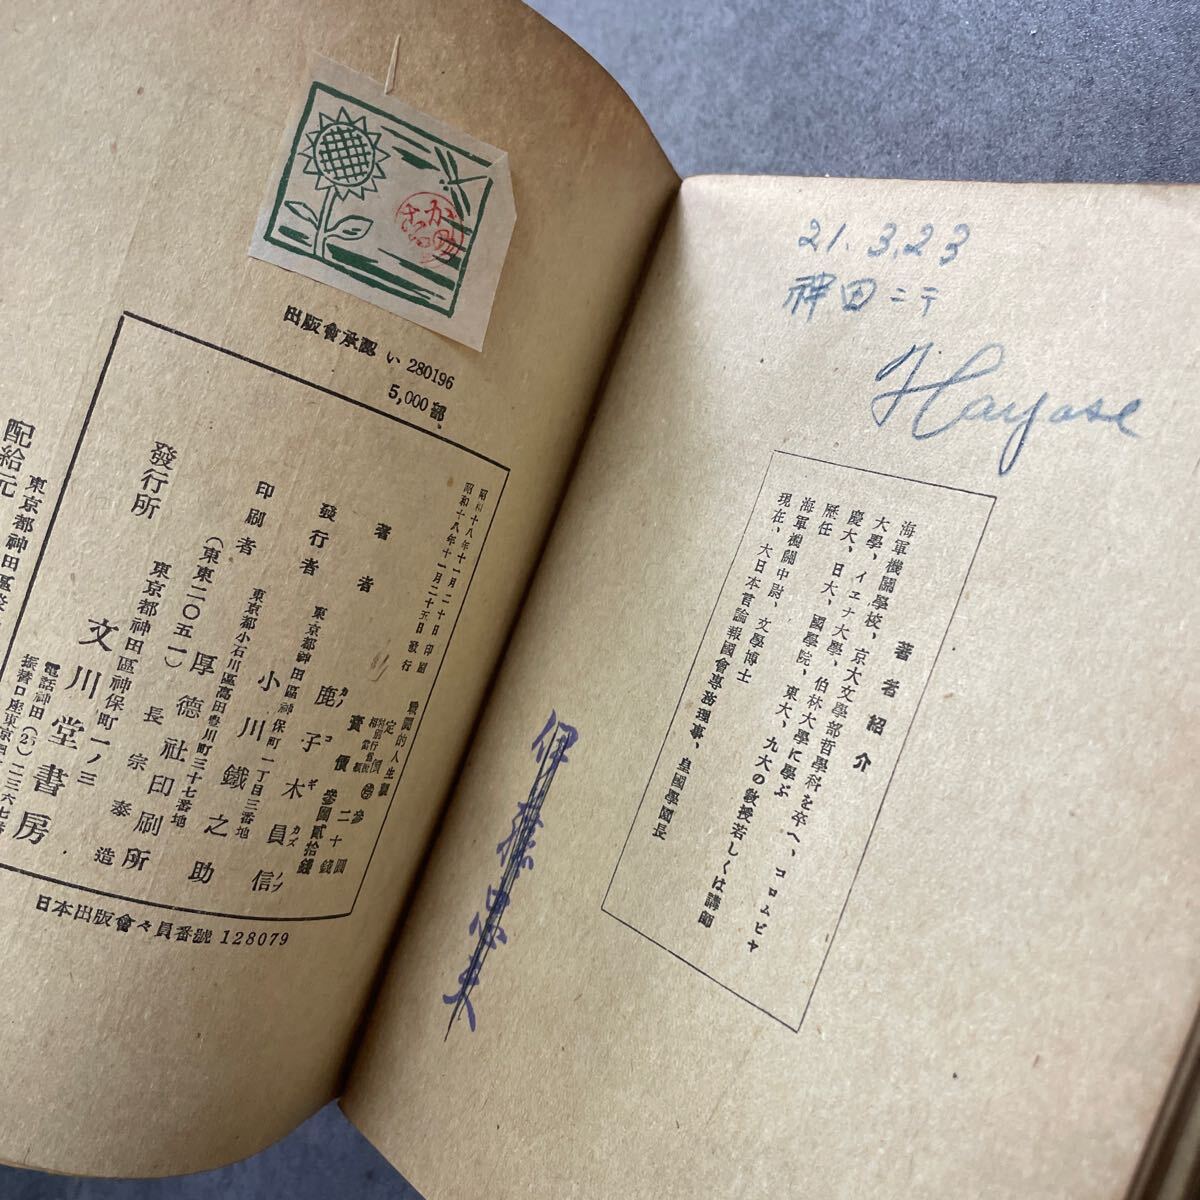 出版會承認 い 280196
5,000部、
昭和十八年十一月二十日印刷
昭和十八年十一月二十五日發行
戰鬪的人生觀
定價 參圓
特別行爲稅相當額 二十錢
賣價 參圓貳拾錢
著者 鹿子木員信
カノコギカズノブ
發行者 東京都神田區神保町一丁目三番地
小川鐵之助
印刷者 東京都小石川區高田豊川町三十七番地
長宗泰造
(東東二〇五一) 厚德社印刷所
發行所 東京都神田區神保町一ノ三
文川堂書房
電話神田(25)二三六七番
振替口座東京
配給元 東京都神田區淡
日本出版會々員番號 128079
21.3.23
神田ニテ
Hayase
著者紹介
海軍機關學校、京大文學部哲學科を卒へ、コロムビヤ
大學、イエナ大學、伯林大學に學ぶ
慶大、日大、國學院、東大、九大の敎授若しくは講師
歷任
海軍機關中尉、文學博士
現在、大日本言論報國會專務理事、皇國學園長
伊藤忠夫